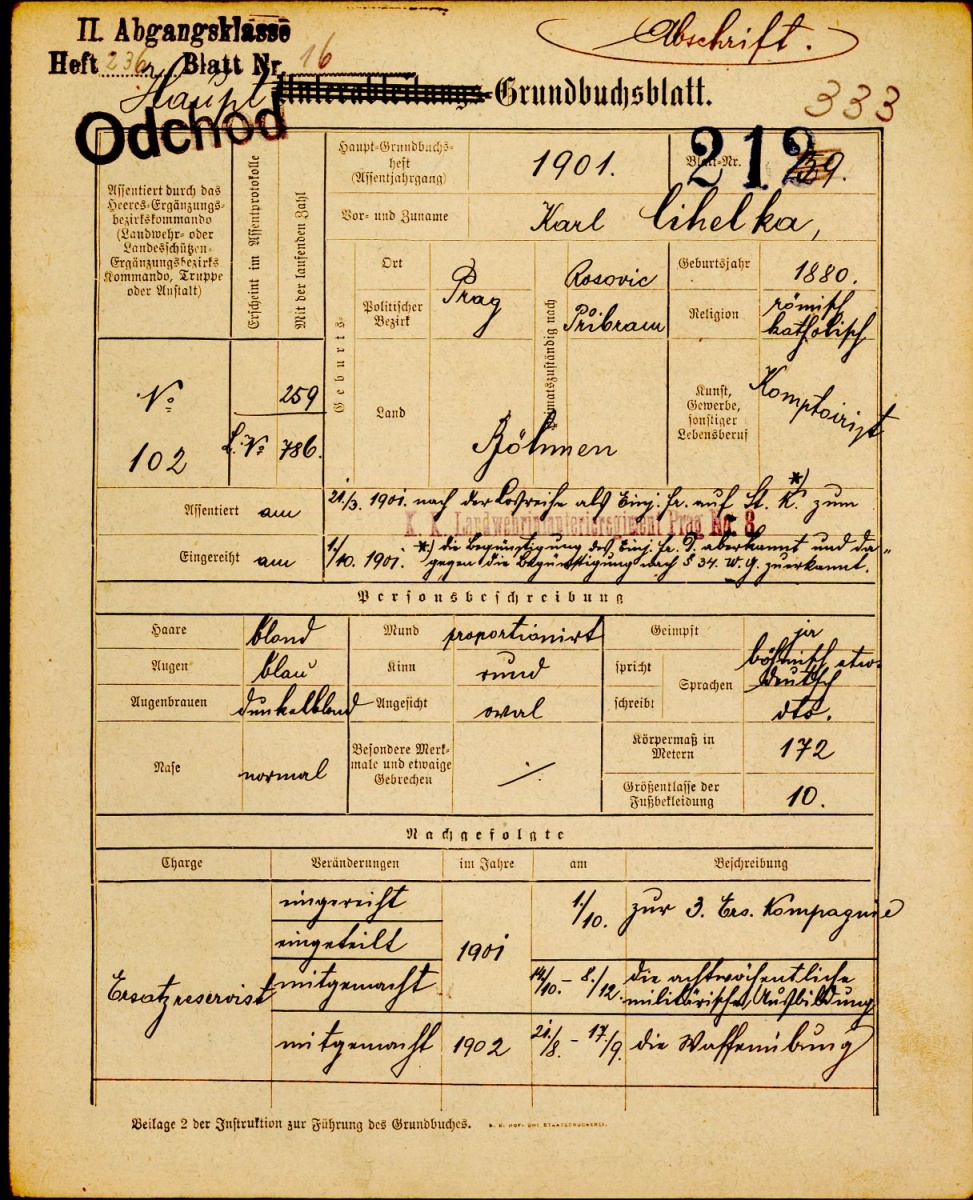 II. Abgangsklasse
Heft 236 Blatt Nr. 16
Abschrift.
Haupt Unterabteilungs-Grundbuchsblatt.
333
Odchod
Assentiert durch das
Heeres-Ergänzungs-
bezirkskommando
(Landwehr- oder
Landesschützen-
Ergänzungsbezirks
Kommando, Truppe
oder Anstalt)
Erscheint im Assentprotokolle
Mit der laufenden Zahl
No
102
259
L. No 786.
Haupt-Grundbuchs-
heft
(Assentjahrgang)
1901.
Blatt-Nr.
212
Vor- und Zuname
Karl Cihelka,
Geburts-
Ort
Politischer
Bezirk
Prag
Land
Heimatszuständig nach
Rosovic
Přibram
Böhmen
Geburtsjahr
1880.
Religion
römisch
katholisch
Kunst,
Gewerbe,
sonstiger
Lebensberuf
Komptoirist
Assentiert am
21./3. 1901. nach der Losreihe als Einj. Fr. auf St. K. *) zum
K. K. Landwehrinfanterieregiment Prag No. 8
Eingereiht am
1./10. 1901. *) die Begünstigung des Einj. Fr. D. aberkannt und da-
gegen die Begünstigung nach § 34. W. G. zuerkannt.
Personsbeschreibung
Haare blond
Mund proportionirt
Geimpft ja
Augen blau
Kinn rund
spricht
schreibt
Sprachen
böhmisch etw.
deutsch
dto.
Augenbrauen dunkelblond
Angesicht oval
Nase normal
Besondere Merk-
male und etwaige
Gebrechen
./.
Körpermaß in
Metern
172
Größenklasse der
Fußbekleidung
10.
Nachgefolgte
Charge Veränderungen im Jahre am Beschreibung
Ersatzreservist
eingereiht 1901 1./10. zur 3. Ers. Kompagnie
eingeteilt
mitgemacht 14./10. - 8./12. die achtwöchentliche
militärische Ausbildung
mitgemacht 1902 21./8. - 17./9. die Waffenübung
Beilage 2 der Instruktion zur Führung des Grundbuches. K. K. HOF- UND STAATSDRUCKEREI.